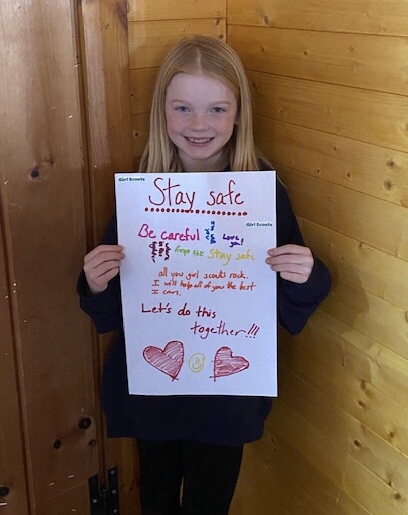 Girl Scouts
Stay safe
Girl Scouts
Be careful
Love you!
Stay safe
all you girl scouts rock.
I will help all of you the best
I can.
Let's do this
together!!!